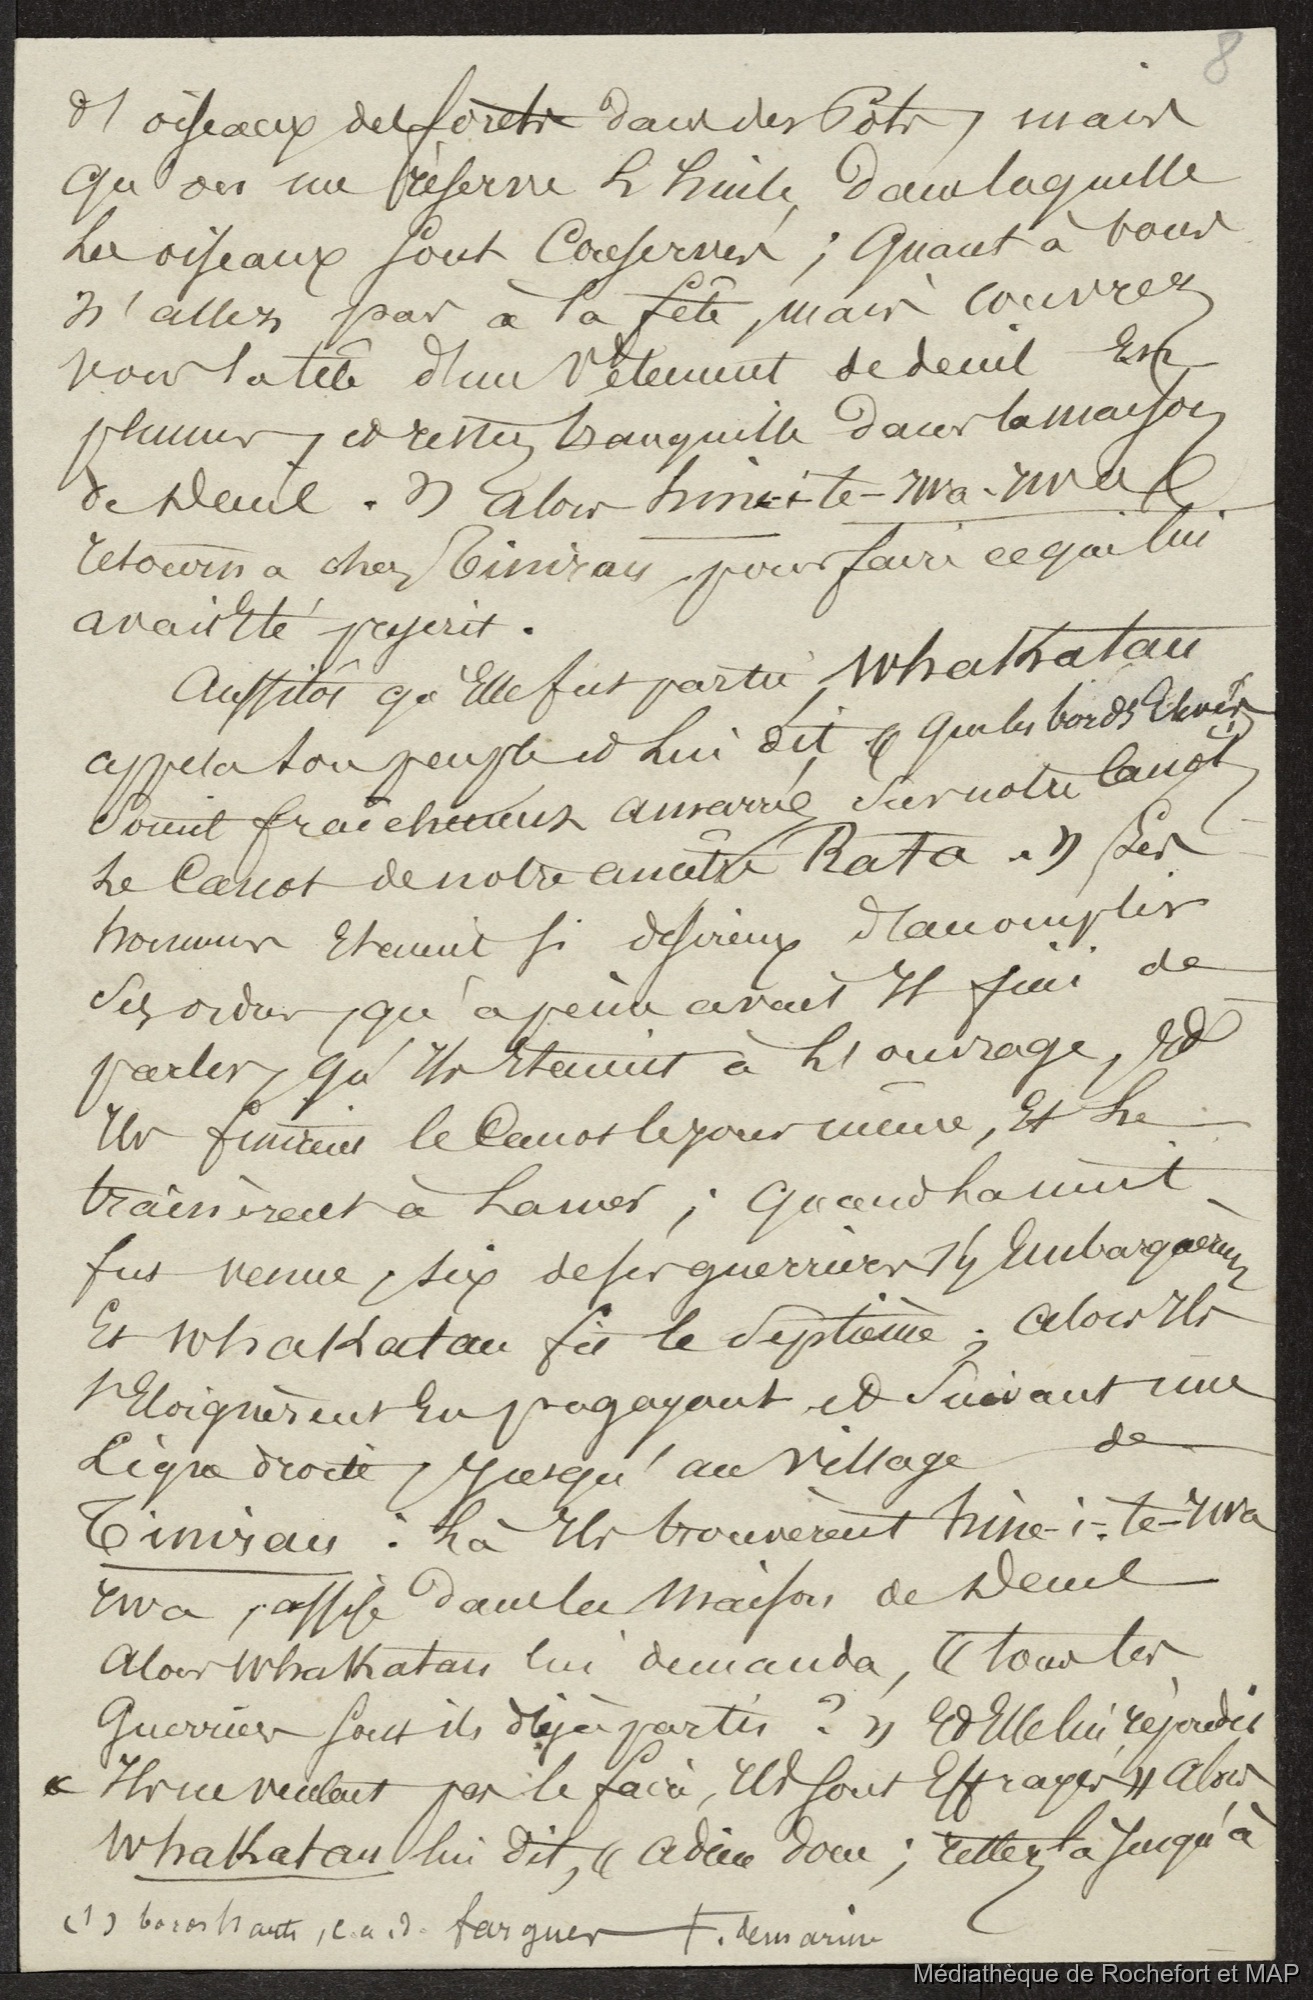 8
d'oiseaux des forêts dans des Pots, mais
qu'on me réserve l'huile, dans laquelle
les oiseaux sont Conservés ; Quant à vous
n'allez pas à la fête, mais couvrez
vous la tête d'un Vêtement de deuil En
plumes, et restez tranquille dans la maison
de deuil. » alors hine-i-te-iwa-iwa
retourna chez Tinirau, pour faire ce qui lui
avait Eté prescrit.
Aussitôt qu'Elle fut partie, Whakatau
appela son peuple et lui dit « que les bords Elevés
soient fraîchement amarrés sur notre Canot,
le Canot de notre ancêtre Rata. » Ses
hommes Etaient si désireux d'accomplir
ses ordres, qu'à peine avait Il fini de
parler, qu'Ils Etaient à l'ouvrage, Et
Ils finirent le Canot le jour même, Et le
traînèrent à la mer ; Quand la nuit
fut venue, six de ses guerriers s'y Embarquèrent
Et Whakatau fit le Septième ; alors Ils
s'Eloignèrent En pagayant et suivant une
Ligne droite, Jusqu'au Village de
Tinirau : Là Ils trouvèrent hine-i-te-iwa
iwa, assise dans la Maison de deuil
Alors Whakatau lui demanda, « tous les
Guerriers sont ils déjà partis ? » Et Elle lui répondit
« Ils ne veulent pas le faire, Ils sont Effrayés » Alors
Whakatau lui dit, « Adieu donc ; restez là Jusqu'à
(1) bords hauts, c. a. d. fargues T. de marine
Médiathèque de Rochefort et MAP